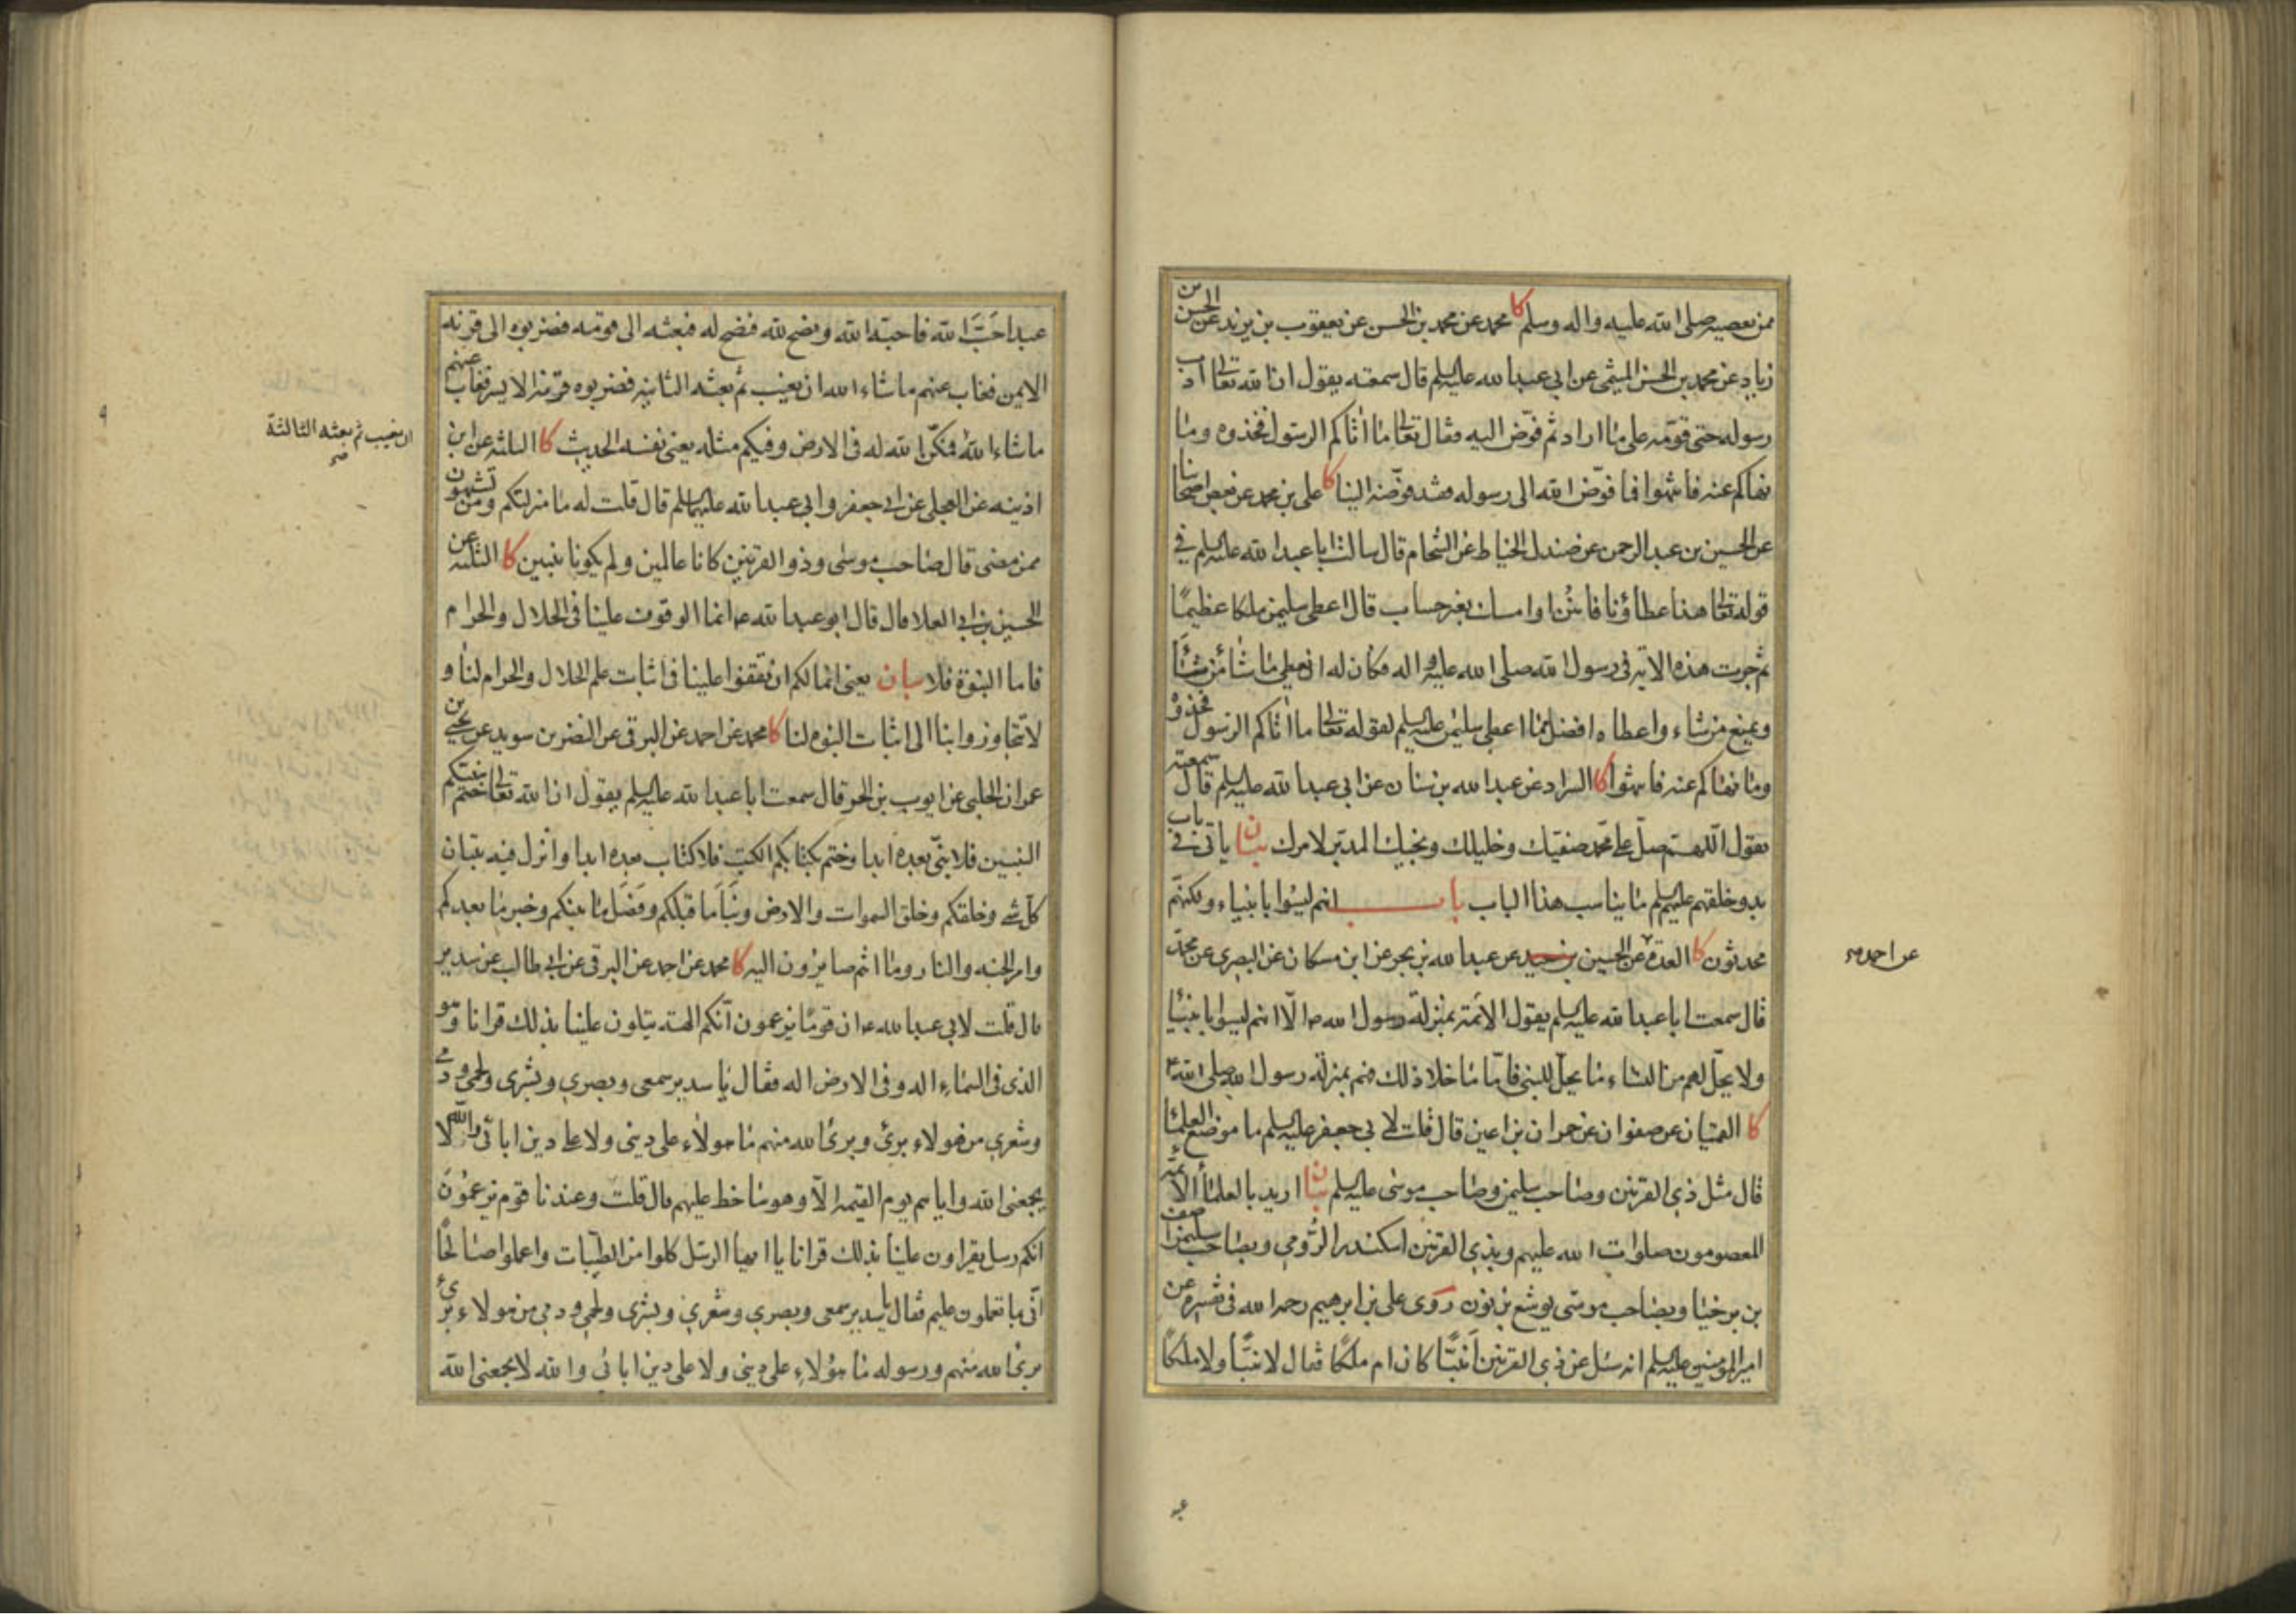 ممن يعصيه صلى الله عليه واله وسلم كا محمد عن محمد بن الحسن عن يعقوب بن يزيد عن الحسن بن
زياد عن محمد بن الحسن الميثمي عن ابي عبد الله عليه السلم قال سمعته يقول ان الله تعالى ادب
رسوله حتى قومه على ما اراد ثم فوّض اليه فقال تعالى ما اتاكم الرسول فخذوه وما
نهاكم عنه فانتهوا فما فوّض الله الى رسوله فقد فوّضه الينا كا علي بن محمد عن بعض اصحابنا
عن الحسين بن عبد الرحمن عن صندل الخياط عن الشحام قال سالت ابا عبد الله عليه السلم في
قوله تعالى هذا عطاؤنا فامنن او امسك بغير حساب قال اعطى سليمن ملكا عظيمًا
ثم جرت هذه الاية في رسول الله صلى الله عليه واله فكان له ان يعطي ما شاء من شاء
ويمنع من شاء واعطاه افضل مما اعطى سليمن عليه السلم لقوله تعالى ما اتاكم الرسول فخذوه
وما نهاكم عنه فانتهوا كا السراد عن عبد الله بن سنان عن ابي عبد الله عليه السلم قال سمعته
يقول اللهم صل على محمد صفيك وخليلك ونجيك المدبر لامرك بيان ياتي في باب
بدو خلقهم عليهم السلم ما يناسب هذا الباب باب انهم ليسوا بانبياء ولكنهم
محدثون كا العدة عن الحسين عن عبد الله بن بحر عن ابن مسكان عن البصري عن محمد
عن احمد صح
قال سمعت ابا عبد الله عليه السلم يقول الائمة بمنزلة رسول الله ص الّا انهم ليسوا بانبياء
ولا يحلّ لهم من النساء ما يحل للنبي فامّا ما خلا ذلك فهم بمنزلة رسول الله صلى الله ع
كا القميان عن صفوان عن حمران بن اعين قال قلت لابي جعفر عليه السلم ما موضع العلماء
قال مثل ذي القرنين وصاحب سليمن وصاحب موسى عليه السلم بيان اريد بالعلماء الائمة
المعصومون صلوات الله عليهم وبذي القرنين اسكندر الرومي وبصاحب سليمن اصف
بن برخيا وبصاحب موسى يوشع بن نون روى علي بن ابرهيم رحمه الله في تفسيره عن
امير المومنين عليه السلم انه سئل عن ذي القرنين انبيًّا كان ام ملكًا فقال لا نبيًّا ولا ملكًا
عبد
عبدا احَبَّ الله فاحبه الله ونصح لله فنصح له فبعثه الى قومه فضربوه الى قرنه
الايمن فغاب عنهم ما شاء الله ان يغيب ثم بعثه الثانية فضربوه على قرنه الايسر فغاب عنهم
ما شاء الله فمكّن الله له في الارض وفيكم مثله يعني نفسه الحديث كا الثلثة عن ابن
ان يغيب ثم بعثه الثالثة صح
اذينه عن العجلي عن ابي جعفر وابي عبد الله عليهما السلم قال قلت له ما منزلتكم ومن تشبهون
ممن مضى قال صاحب موسى وذو القرنين كانا عالمين ولم يكونا نبيين كا الثلثه عن
الحسين بن ابي العلا قال قال ابو عبد الله ع انما الوقوف علينا في الحلال والحرام
فاما النبوة فلا بيان يعني انما لكم ان تقفوا علينا في اثبات علم الحلال والحرام لنا و
لا تتجاوزوا بنا الى اثبات النبوة لنا كا محمد عن احمد عن البرقي عن النضر بن سويد عن يحيى بن
عمران الحلبي عن ايوب بن الحر قال سمعت ابا عبد الله عليه السلم يقول ان الله تعالى ختم بنبيكم
النبيين فلا نبيّ بعده ابدا وختم بكتابكم الكتب فلا كتاب بعده ابدا وانزل فيه تبيان
كل شي وخلقكم وخلق السموات والارض ونبأ ما قبلكم وفصل ما بينكم وخبر ما بعدكم
وامر الجنة والنار وما انتم صايرون اليه كا محمد عن احمد عن البرقي عن ابي طالب عن سدير
قال قلت لابي عبد الله ع ان قومًا يزعمون انكم الهة يتلون علينا بذلك قرانا وهو
الذي في السماء اله وفي الارض اله فقال يا سدير سمعي وبصري وبشري ولحمي ودمي
وشعري من هولاء بريء وبرئ الله منهم ما هولاء على ديني ولا على دين ابائي والله لا
يجمعني الله واياهم يوم القيمة الّا وهو ساخط عليهم قال قلت وعندنا قوم يزعمون
انكم رسل يقراون علينا بذلك قرانا يا ايها الرسل كلوا من الطيبات واعملوا صالحًا
انّي بما تعملون عليم فقال يا سدير سمعي وبصري وشعري وبشري ولحمي ودمي من هولاء بريء
برئ الله منهم ورسوله ما هؤلاء على ديني ولا على دين ابائي والله لا يجمعني الله